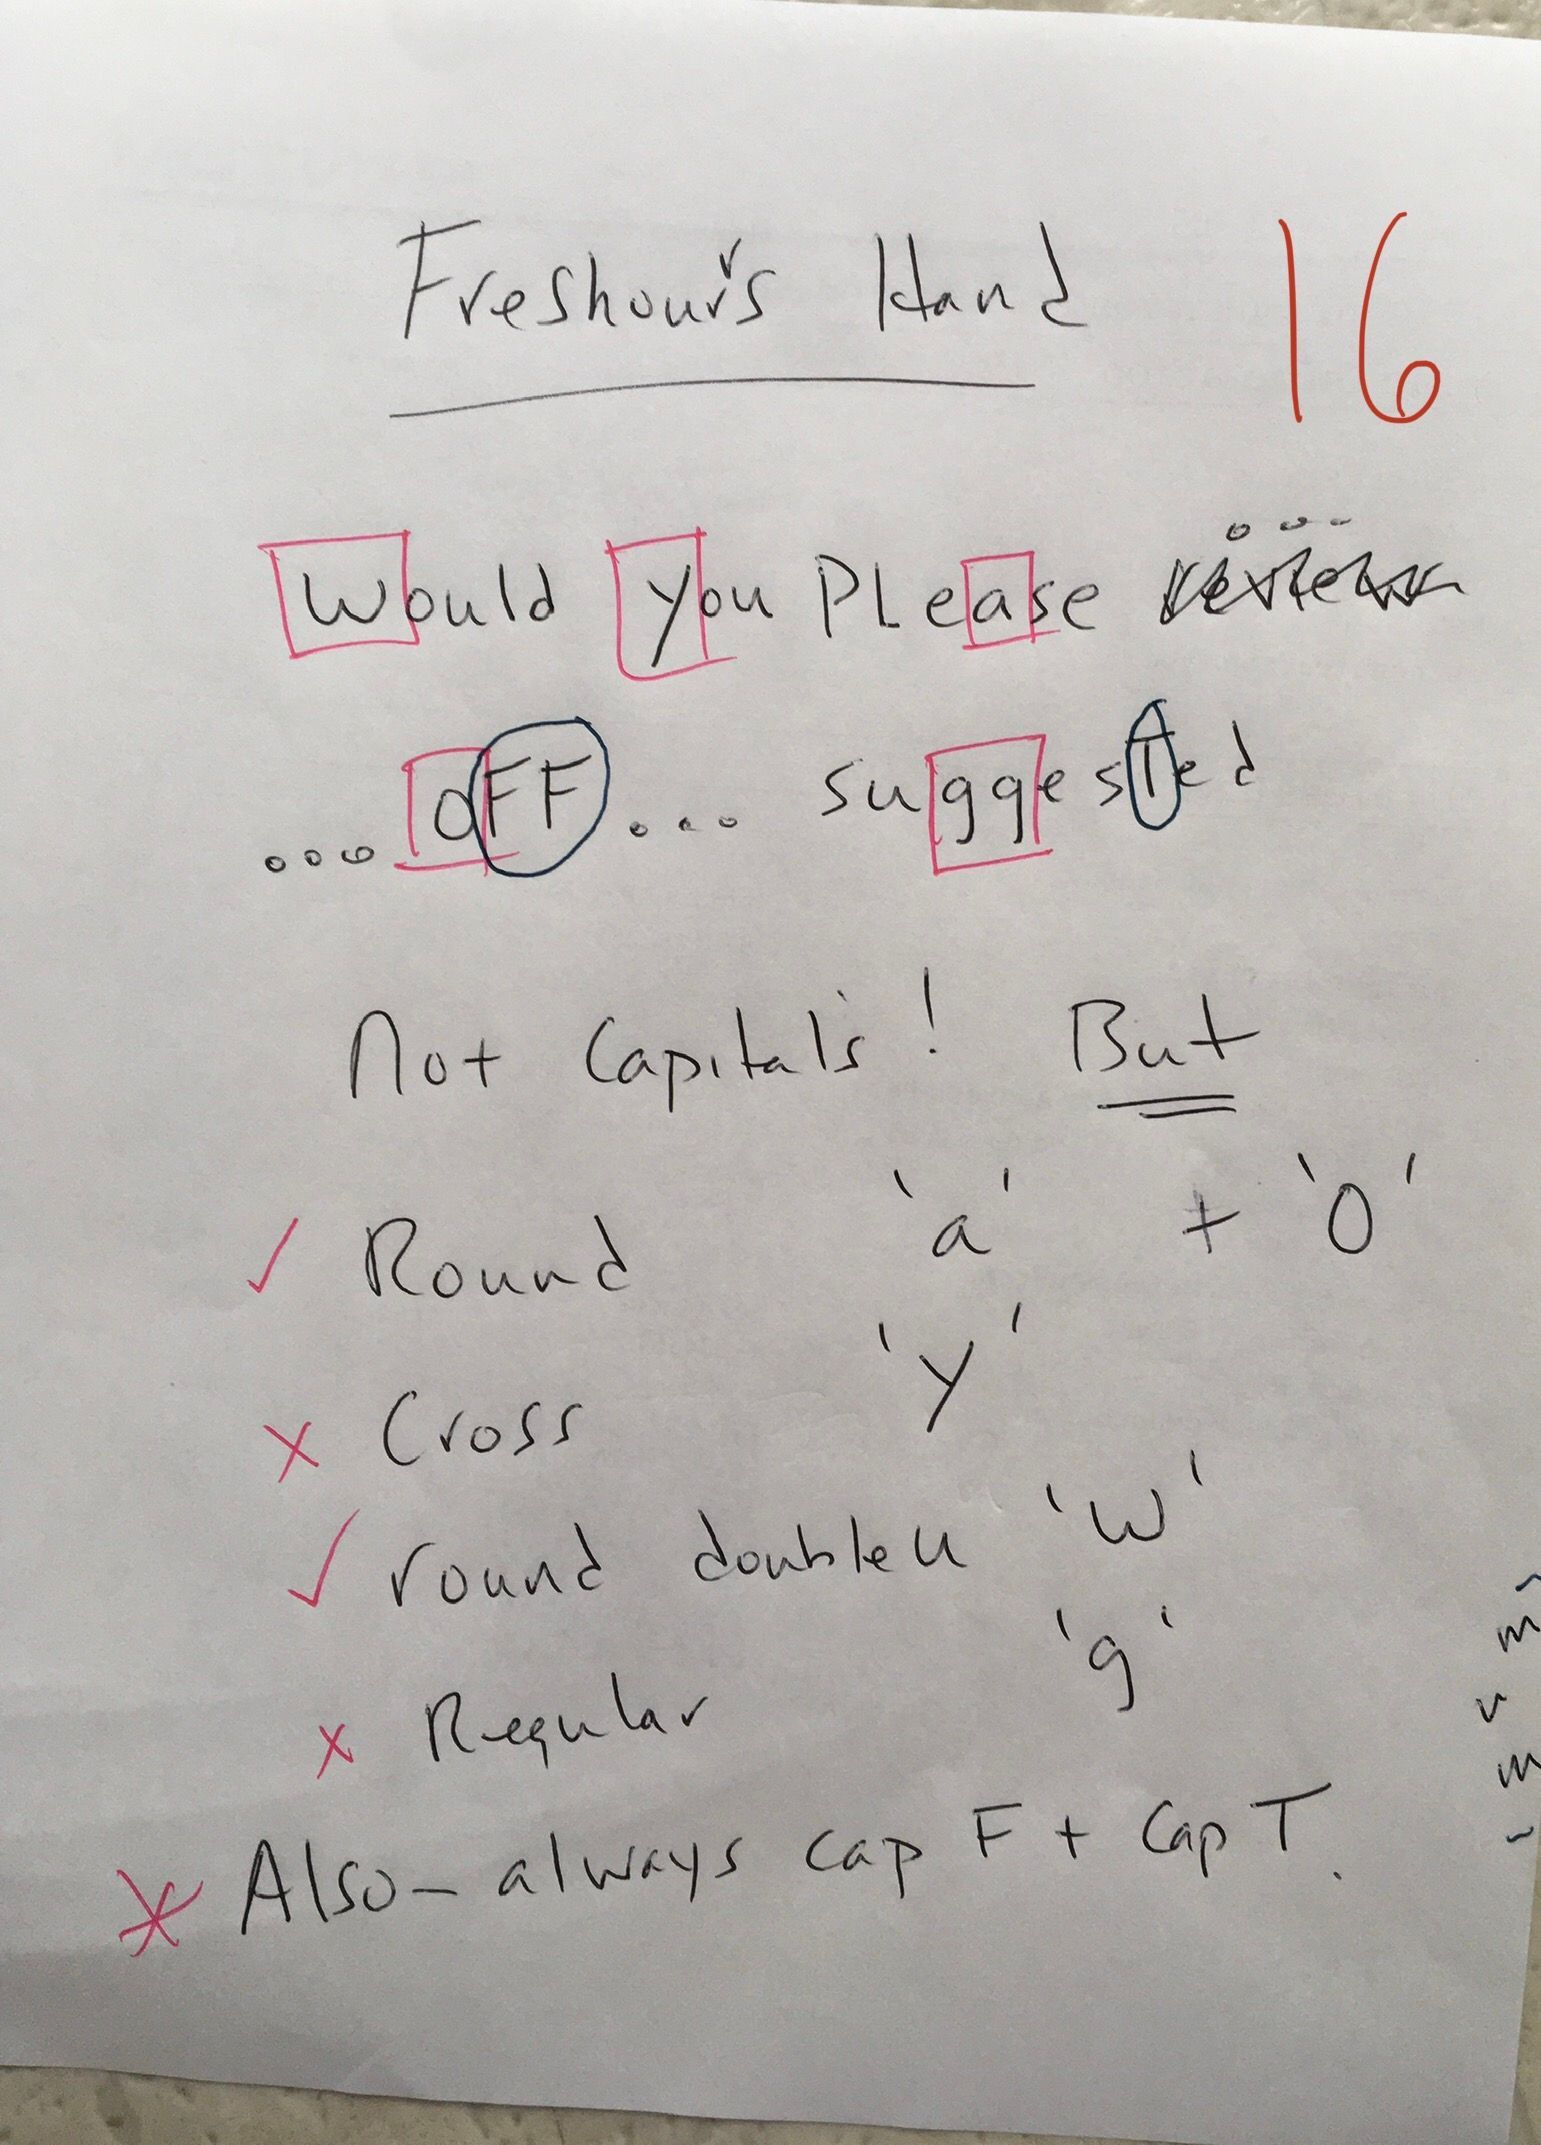 Freshour's Hand 16
Would you PLease
... oFF ... suggesTed
Not Capitals! But
✓ Round 'a' + 'o'
x Cross 'y'
✓ round doubleu 'w'
x Regular 'g'
* Also - always cap F + Cap T.